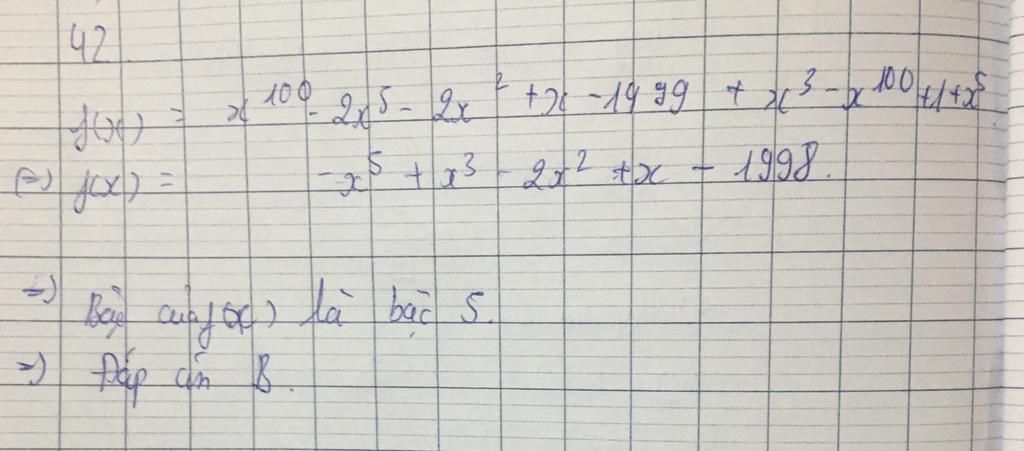 42
f(x) = x^100 - 2x^5 - 2x^2 + x - 1999 + x^3 - x^100 + 1 + x^5
(=) f(x) = -x^5 + x^3 - 2x^2 + x - 1998.
=) Bậc của f(x) là bậc 5.
=) Đáp án B.